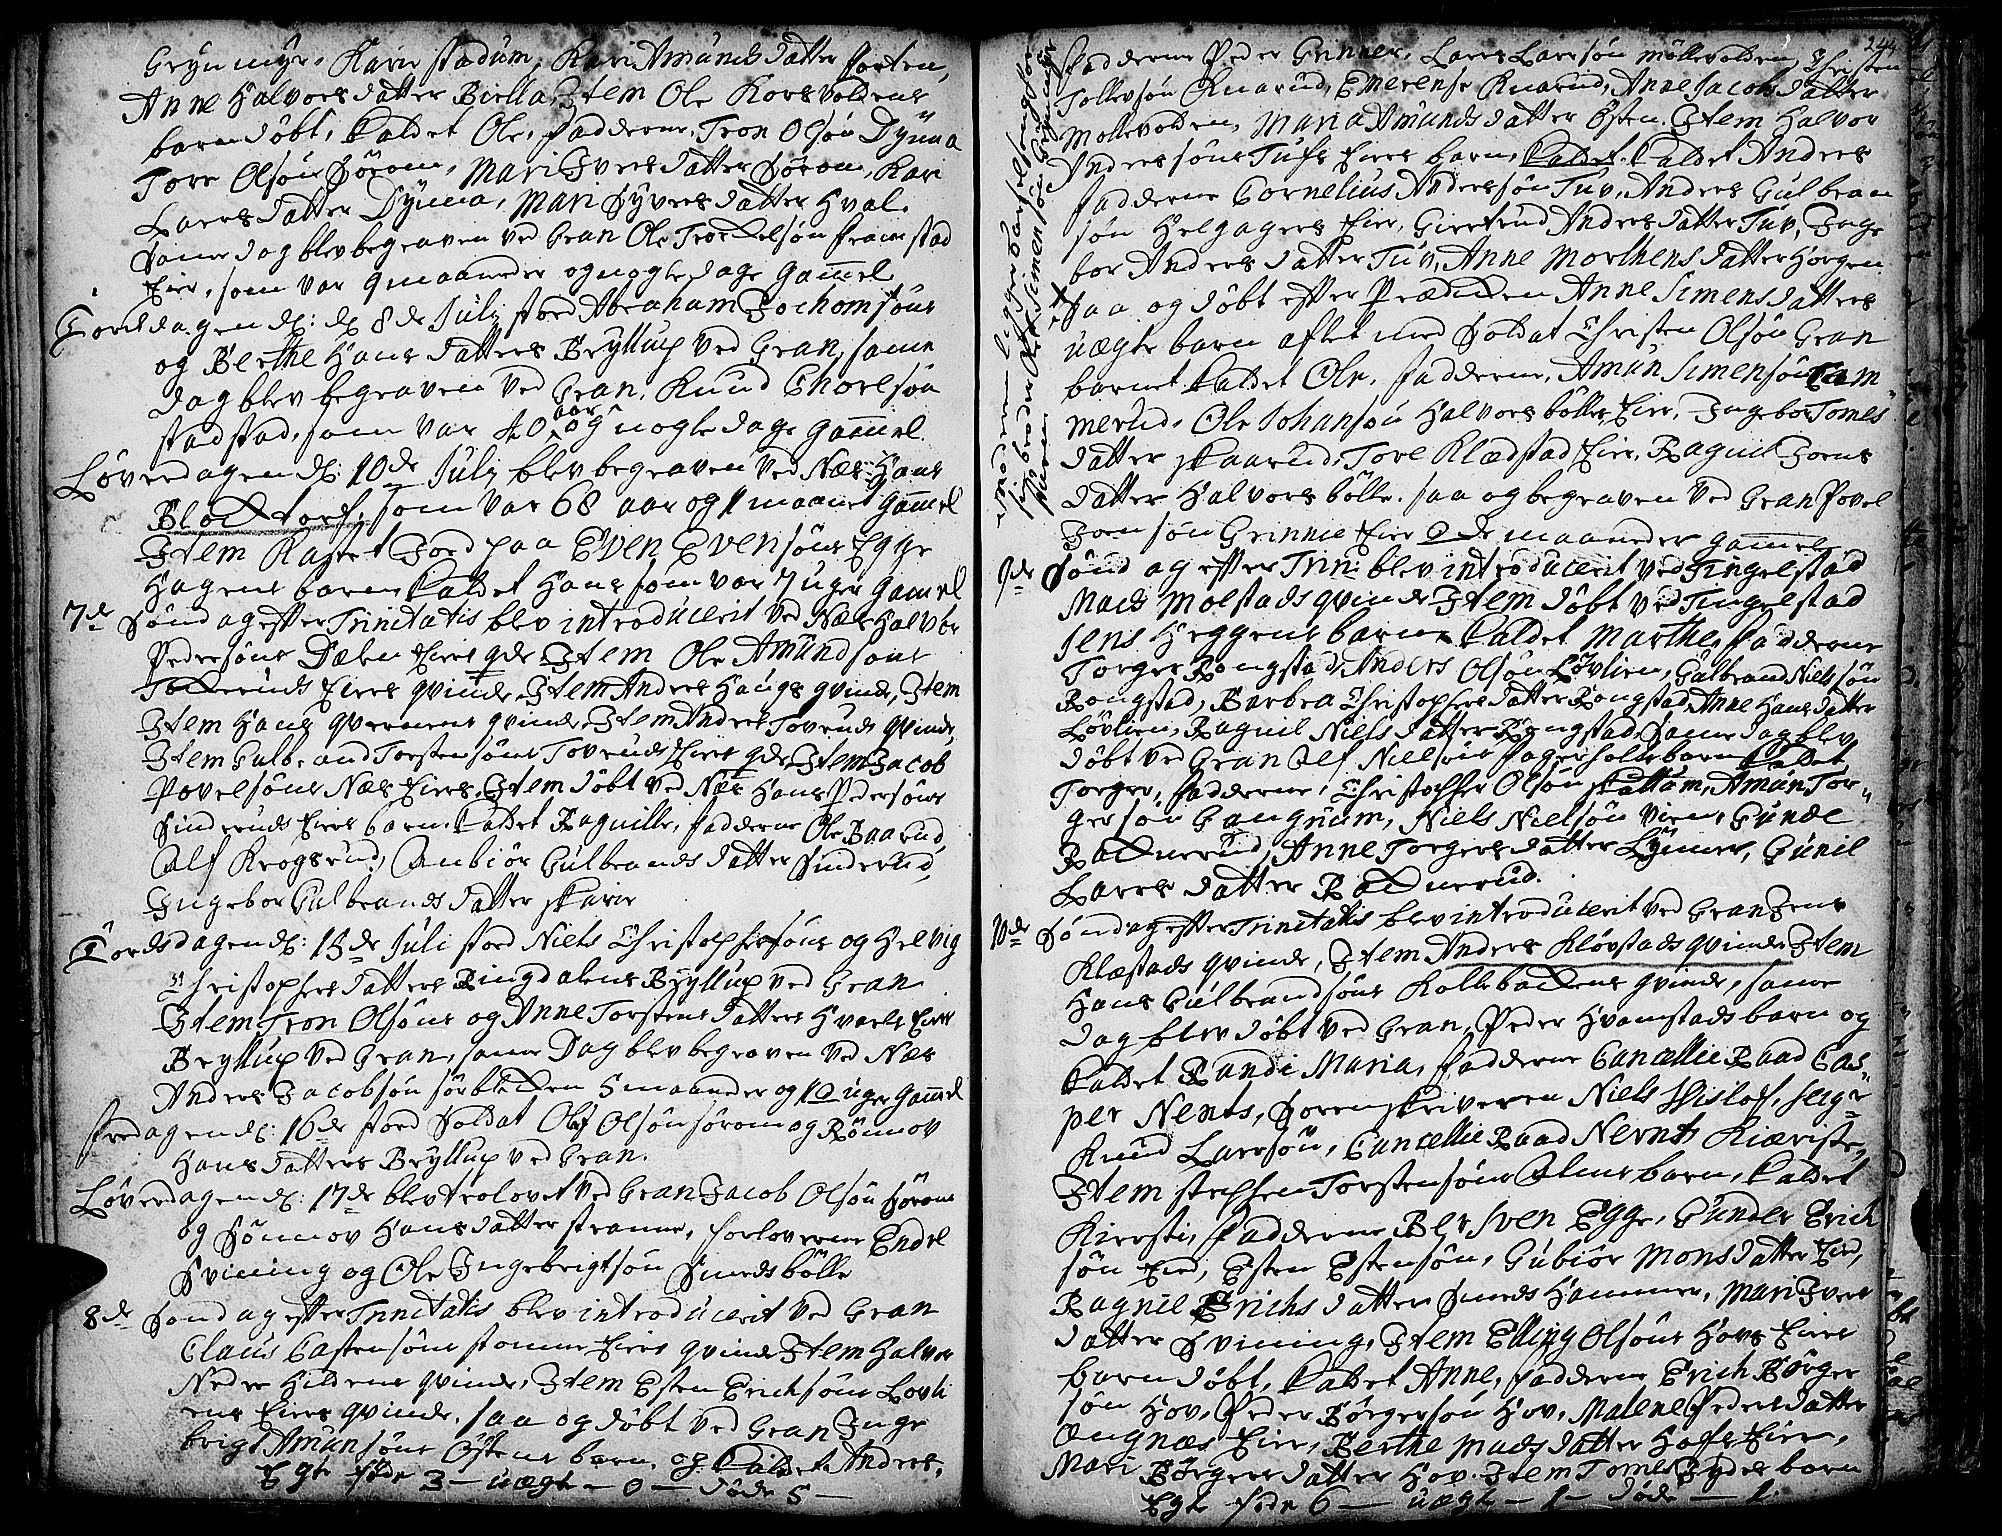 Gryn myr, Karie stadum, Kari Amunds datter Horten,
Anne Halvors datter Biella, Item Ole Korsvoldens
barn döbt, kaldet Ole, fadderne, Tron Olsön Dynna
Tore Olsön Sörom, Mari Ivers datter Sörom, Kari
Lars datter Dynna, Mari Syvers datter Hval.
Same dag blev begraven ved Gran Ole Trockelsön framstad
Eier, som var 9 maaneder og nogle dage gamel
Torsdagen d: 8de July stod Abraham Jochomsöns
og Berthe Hans datters Bryllup ved Gran, same
dag blev begraven ved Gran, Knud Thorelsön
stadstad, som var 40 aar og nogle dage gamel.
Löverdagen d: 10de July blev begraven ved Næs Hans
Blocktorf, som var 68 aar og 1 maanet gamel
Item Kastet Jord paa Even Evensöns Egge
Hagens barn kaldet Hans som var 7 uger gamel
7de Söndag efter Trinitatis blev introducerit ved Næs Halvor
Pedersöns Dælen Eiers qde Item Ole Amundsöns
Tockeruds Eiers qvinde, Item Anders Haugs qvinde, Item
Item Hans qvernens qvinde, Item Anders Toveruds qvinde,
Item Gulbrand Torstensöns Toveruds Eiers qde, Item Jacob
Povelsöns Næs Eiers, Item döbt ved Næs Hans Pedersöns
Sinderuds Eiers barn, kaldet Raguille, fadderne Ole Baarud,
Alf Krogsrud, Anbiör Gulbrands datter Sinderud,
Ingebor Gulbrands datter skarie
Torsdagen d: 15de Juli stod Niels Christophersöns og Helvig
Christophers datters Ringdalens Bryllup ved Gran
Item Tron Olsöns og Anne Torstens datters Hvals Eiers
Bryllup ved Gran, same Dag blev begraven ved Næs
Anders Jacobsön sörblecken 4 maander og 10 uger gamel
fredagen d: 16de stod Soldat Ole Olsön sörom og Rönnov
Hans datters Bryllup ved Gran.
Löverdagen d: 17de blev trolovet ved Gran Jacob Olsön sörom
og Sönnov Hans datter stranne, forloverne Endel
Svining og Ole Ingebrigtsön Smedsbölle
8de Söndag efter Trinitatis blev introducerit ved Gran
Claus Castensöns stomne Eiers qvinde Item Halvor
Neder Hildens qvinde, Item Esten Erichsöns Lovli
ens Eiers qvinde, saa og döbt ved Gran Inge
brigt Amunsöns Östens barn og kaldet Anders,
Egte föde 3 — uægte — 0 — döde 5 —
244
fadderne Peder Grinner, Lars Larsön möllevolden, Christen
Tollevsön Knarud, Emerense Knarud, Anne Jacobs datter
Mollevolden, Maria Amunds datter Östen. Item Halvor
Anderssöns Tufs Eiers barn, kaldet. kaldet Anders
fadderne Cornelius Andersön Tuv, Anders Gulbran
sön Helgagers Eier, Giertrud Anders datter Tuv, Inge
bor Anders datter Tuv, Anne Morthens datter Horgen
saa og döbt efter Prædicken Anne Simens datters
uægte barn aflet med Soldat Christen Olsön Gran
barnet kaldet Ole, fadderne, Amun Simensön Tam
merud, Ole Johansön Halvorsbölle Eier, Ingebor Tomes
datter skaarud, Tore Klædstad Eier, Ragnil Joens
datter Halvorsbölle. saa og begraven ved Gran Povel
Joensön Grinnie Eier 2de maaneder gamel
moderen ligger Barselseng hos
sin broder Ole Simensön Grynmyr
9de Söndag efter Trin: blev introducerit ved Tingelstad
Mads Molstads qvinde Item döbt ved Tingelstad
Jens Heggens barn kaldet Marthe, fadderne
Torger Rongstad, Anders Olsön Lövlien, Gulbrand Nielsön
Rongstad, Barbra Christophers datter Rongstad, Anne Hans datter
Lövlien, Ragnil Niels datter Rongstad, Same dag blev
döbt ved Gran Alf Nielsöns Fagerholts barn kaldet
Torger, fadderne, Christopher Olsön Skattom, Amun Tor-
gersön Gangnum, Niels Nielsön Vien, Gunde
Racknerud, Anne Torgers datter Lynner, Gunil
Lars datter Racknerud.
10de Söndag efter Trinitatis blev introducerit ved Gran Jens
Klæstads qvinde, Item Anders Klövstads qvinde Item
Hans Gulbrandsöns Kollebackens qvinde, same
dag blev döbt ved Gran, Peder Hvamstads barn og
kaldet Randi Maria, fadderne Cancellie Raad Cas-
per Nents, Sorenskriveren Niels Hislof, Sergr
Knud Larsön, Cancellie Raad Nernts Kiæriste,
Item Stephen Torstensöns Almes barn, kaldet
Kiersti, fadderne Bersven Egge, Gunder Erich
sön Eid, Esten Estensön, Gubiör Mons datter Eid,
Ragnil Erichs datter Smeds Hammer, Mari Ivers
datter Svining, Item Elling Olsöns Hovs Eiers
barn döbt, kaldet Anne, fadderne Erich Börger
sön Hov, Peder Börgersön Hov, Malene Peders datter
Ængnæs Eier, Berthe Mads datter Hoffs Eier,
Mari Börgers datter Hov. Item Tomes Rydes barn
Egte föde 6 — uægte — 1 — döde — 1.